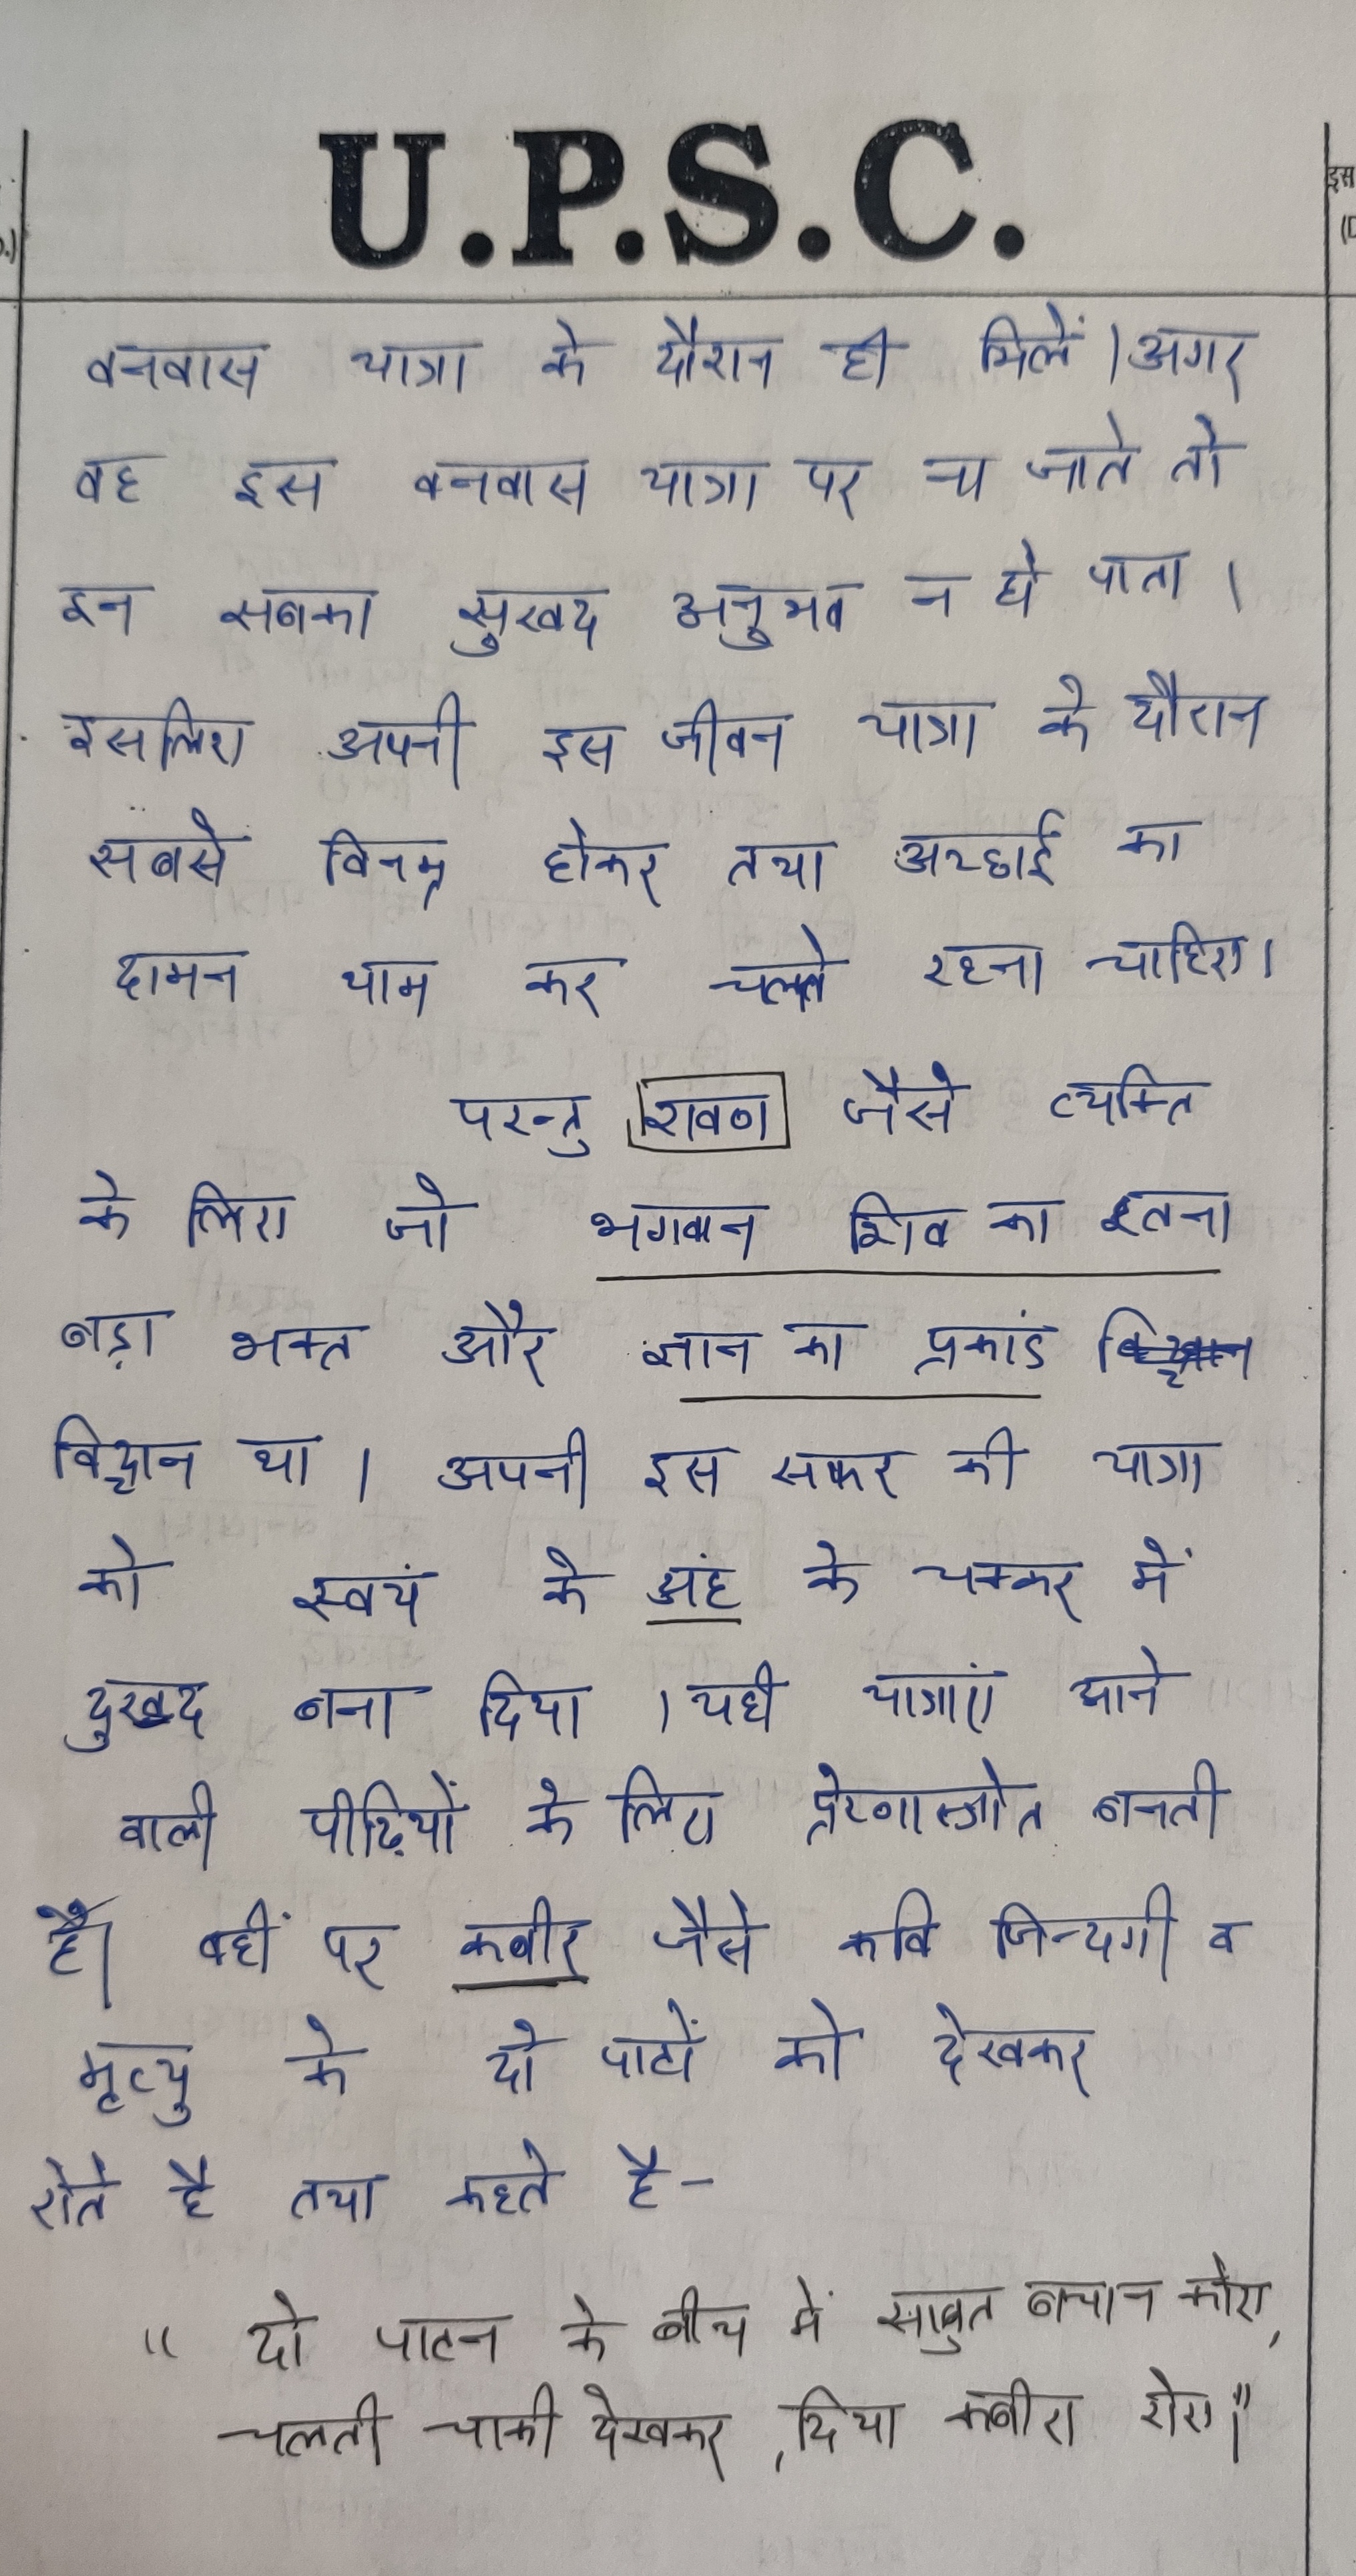 U.P.S.C.
इस
वनवास यात्रा के दौरान ही मिलें। अगर
वह इस वनवास यात्रा पर ना जाते तो
इन सबका सुखद अनुभव न हो पाता।
इसलिए अपनी इस जीवन यात्रा के दौरान
सबसे विनम्र होकर तथा अच्छाई का
दामन थाम कर चलते रहना चाहिए।
परन्तु रावण जैसे व्यक्ति
के लिए जो भगवान शिव का इतना
बड़ा भक्त और ज्ञान का प्रकांड
विद्वान था। अपनी इस सफर की यात्रा
को स्वयं के अंह के चक्कर में
दुखद बना दिया। यही यात्राएं आने
वाली पीढ़ियों के लिए प्रेरणास्त्रोत बनती
हैं। वहीं पर कबीर जैसे कवि जिन्दगी व
मृत्यु के दो पाटों को देखकर
रोते है तथा कहते है-
" दो पाटन के बीच में साबुत बचा न कोए,
चलती चाकी देखकर, दिया कबीरा रोए।"